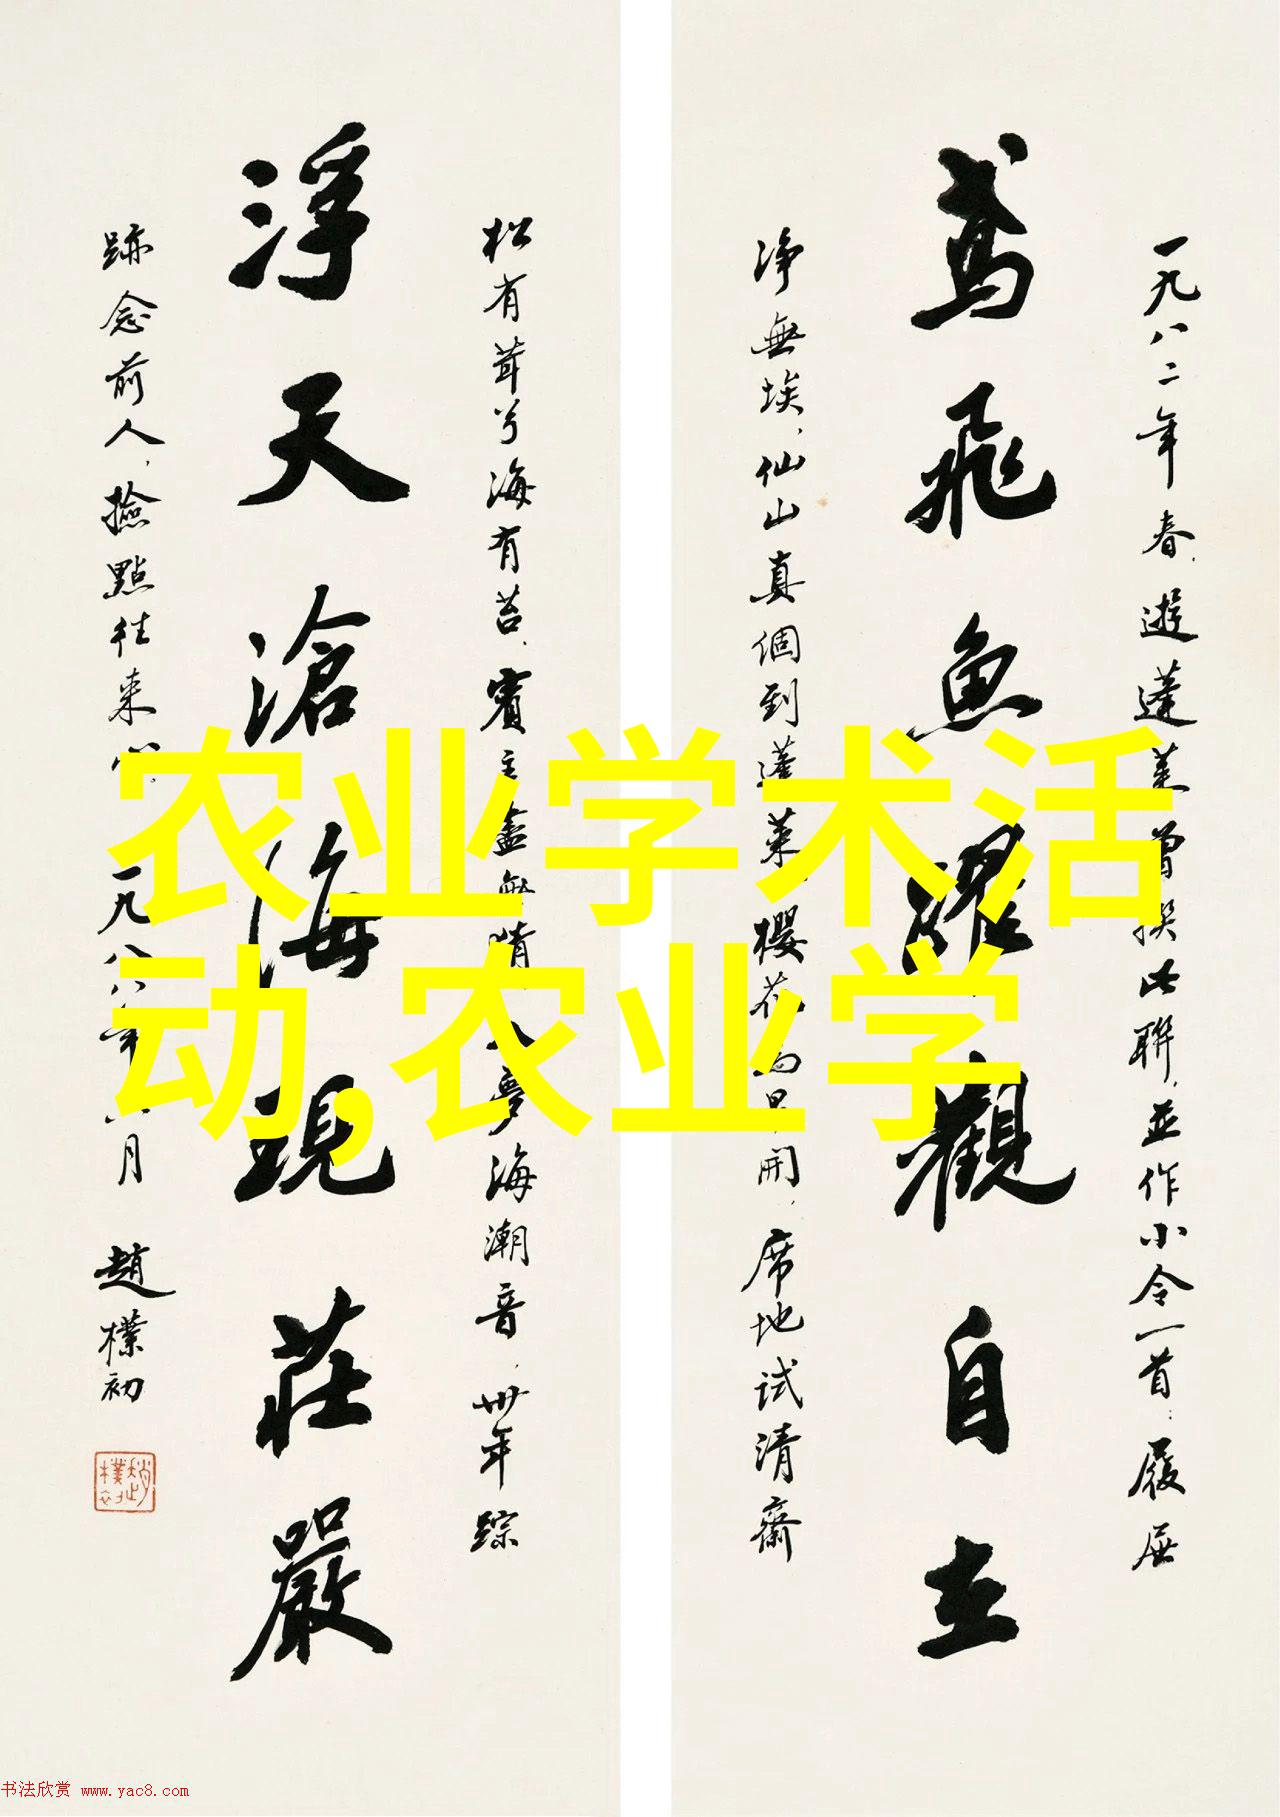 一九八二年春,遊蓬萊曾撰此聯,並作小令一首:履
鳶飛魚躍觀自在
净無埃,仙山真個到蓬萊,櫻花開,席地試清齋
松有茸兮海有苔,賓主盡無情,入夢海潮音,卅年踪
浮天滄海現莊嚴
跡念前人,撿點往來心。一九八八年六月 趙樸初
趙樸初
农业学术活
动,农业学
书法欣赏 www.yac8.com